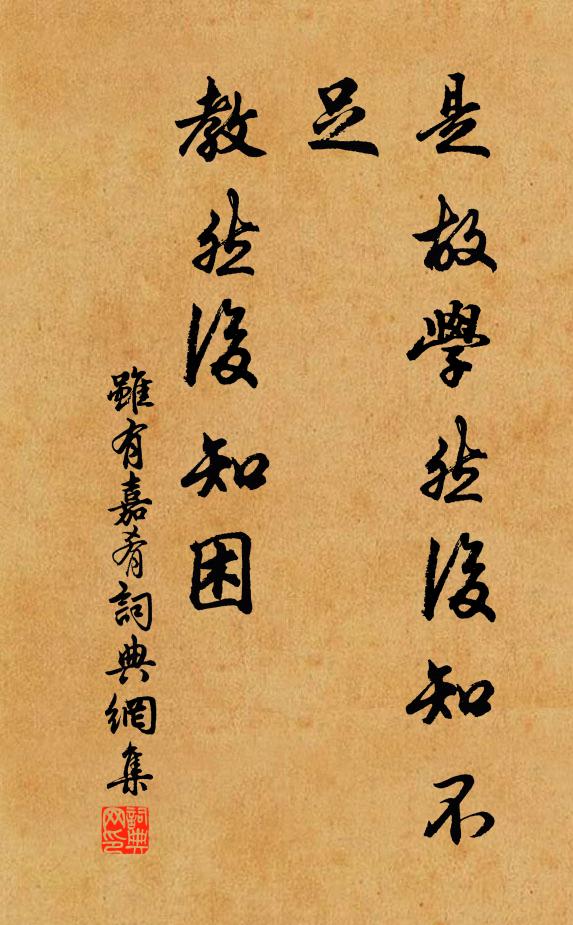 是故學然後知不
足
教然後知困
雖有嘉肴詞典網集
詞典
网印